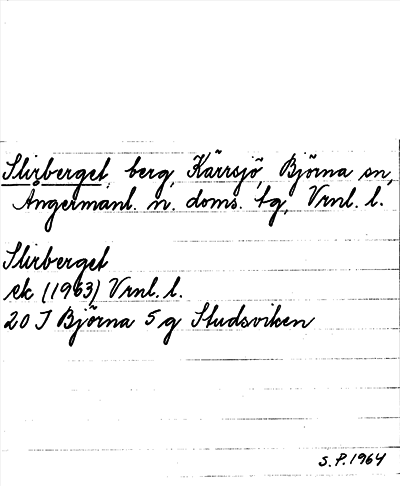 Slirberget, berg, Kärrsjö, Björna sn,
Ångermanl. n. doms. tg, Vrnl. l.
Slirberget
ek (1963) Vrnl. l.
20 J Björna 5 g Studsviken
S.P. 1964